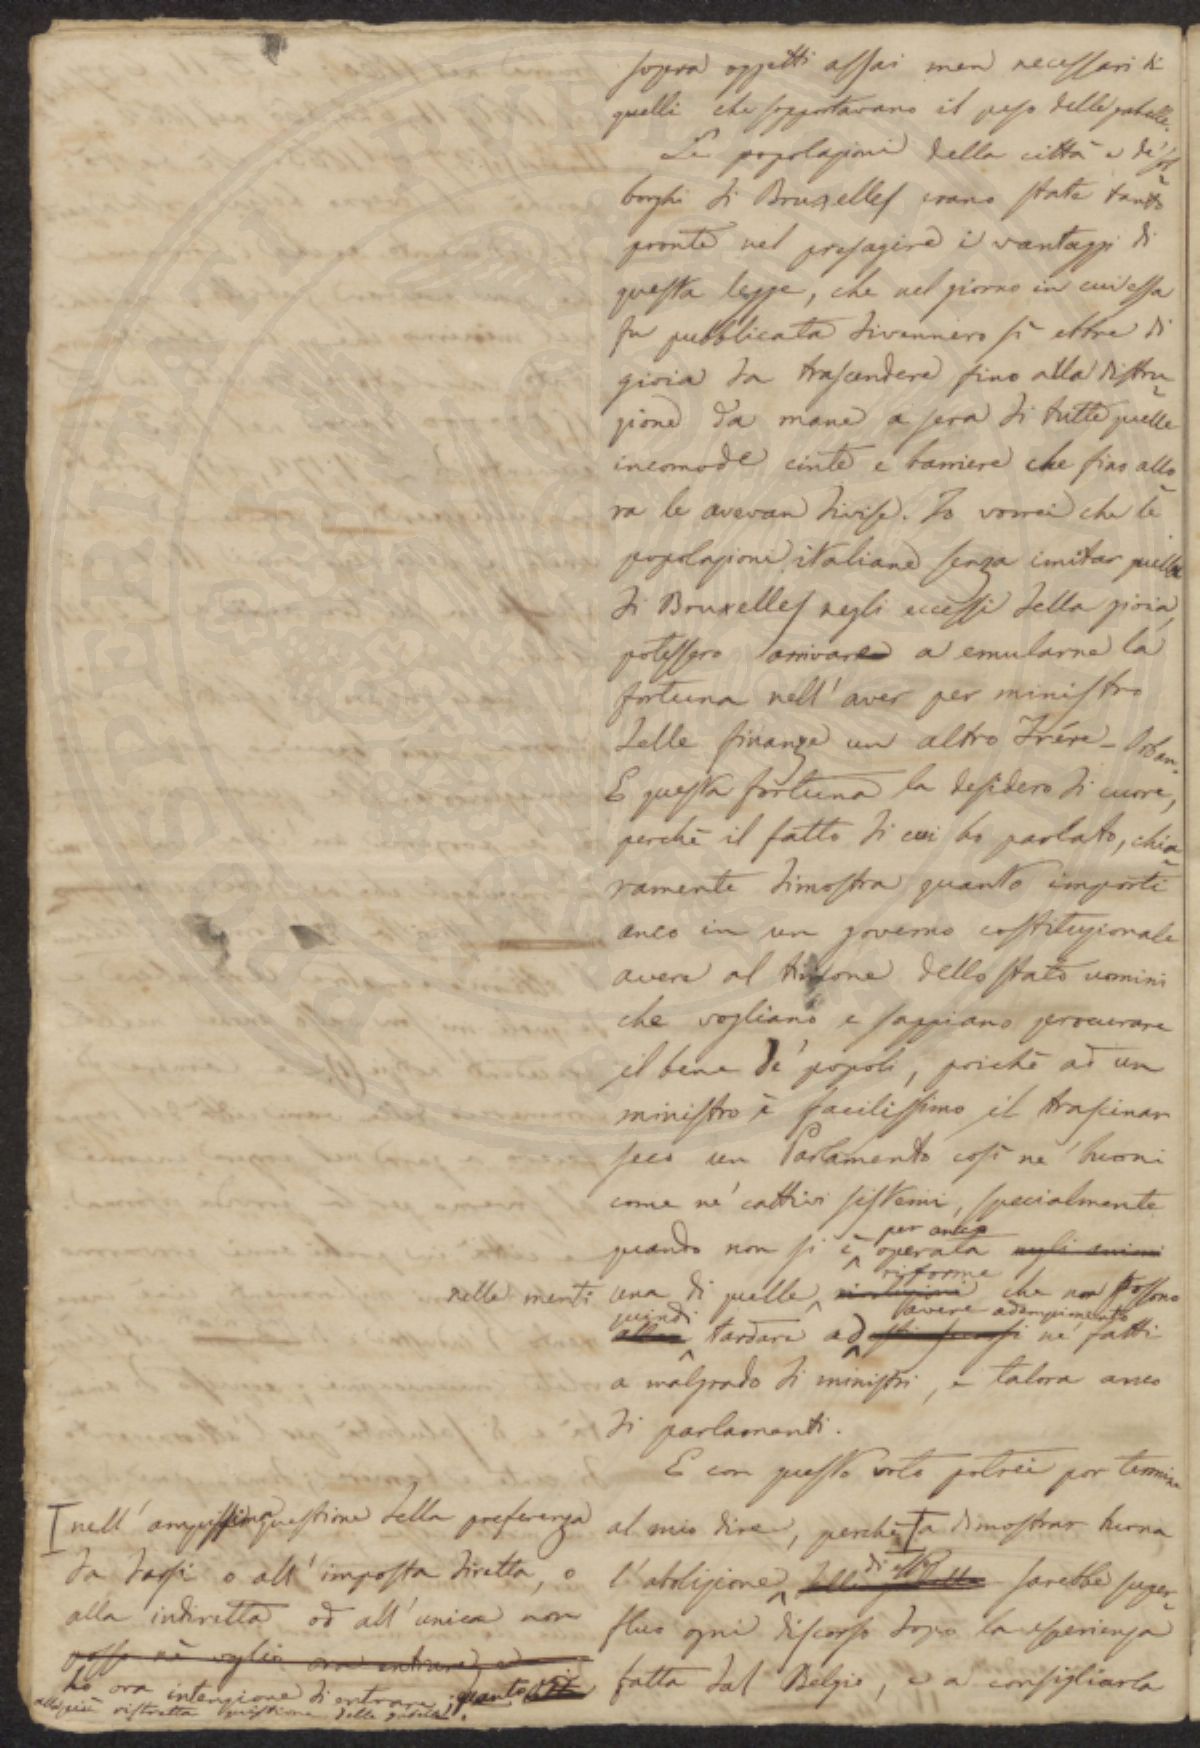 sopra oggetti assai men necessari di
quelli che sopportavano il peso delle gabelle.
Le popolazioni della città e de' sob
borghi di Bruxelles erano state tanto
pronte nel presagire i vantaggi di
questa legge, che nel giorno in cui essa
fu pubblicata divennero sì ebbre di
gioia da trascendere fino alla distru
zione da mane a sera di tutte quelle
incomode cinte e barriere che fino allo
ra le avevan divise. Io vorrei che le
popolazioni italiane senza imitar quelle
di Bruxelles negli eccessi della gioia,
potessero arrivare a emularne la
fortuna nell'aver per ministro
delle finanze un altro Frére-Orban.
E questa fortuna la desidero di cuore,
perchè il fatto di cui ho parlato, chia
ramente dimostra quanto importi
anco in un governo costituzionale
avere al timone dello stato uomini
che vogliano e sappiano procurare
il bene de' popoli, poichè ad un
ministro è facilissimo il trascinar
seco un Parlamento così ne' buoni
come ne' cattivi sistemi, specialmente
per anco
quando non si è operata negli animi
nelle menti
riforme
una di quelle che non possono
quindi avere adempimento
tardare ad ne' fatti
a malgrado di ministri, e talora anco
di parlamenti.
E con questo voto potrei por termine
al mio dire, perchè a dimostrar buona
di esse
l'abolizione sarebbe super
fluo ogni discorso dopo la esperienza
fatta dal Belgio, e a consigliarla
nell'ampissima questione della preferenza
da darsi o all'imposta diretta, o
alla indiretta od all'unica non
posso nè voglio ora entrare, e
ho ora intenzione di entrare, quanto
alla più ristretta questione delle gabelle.